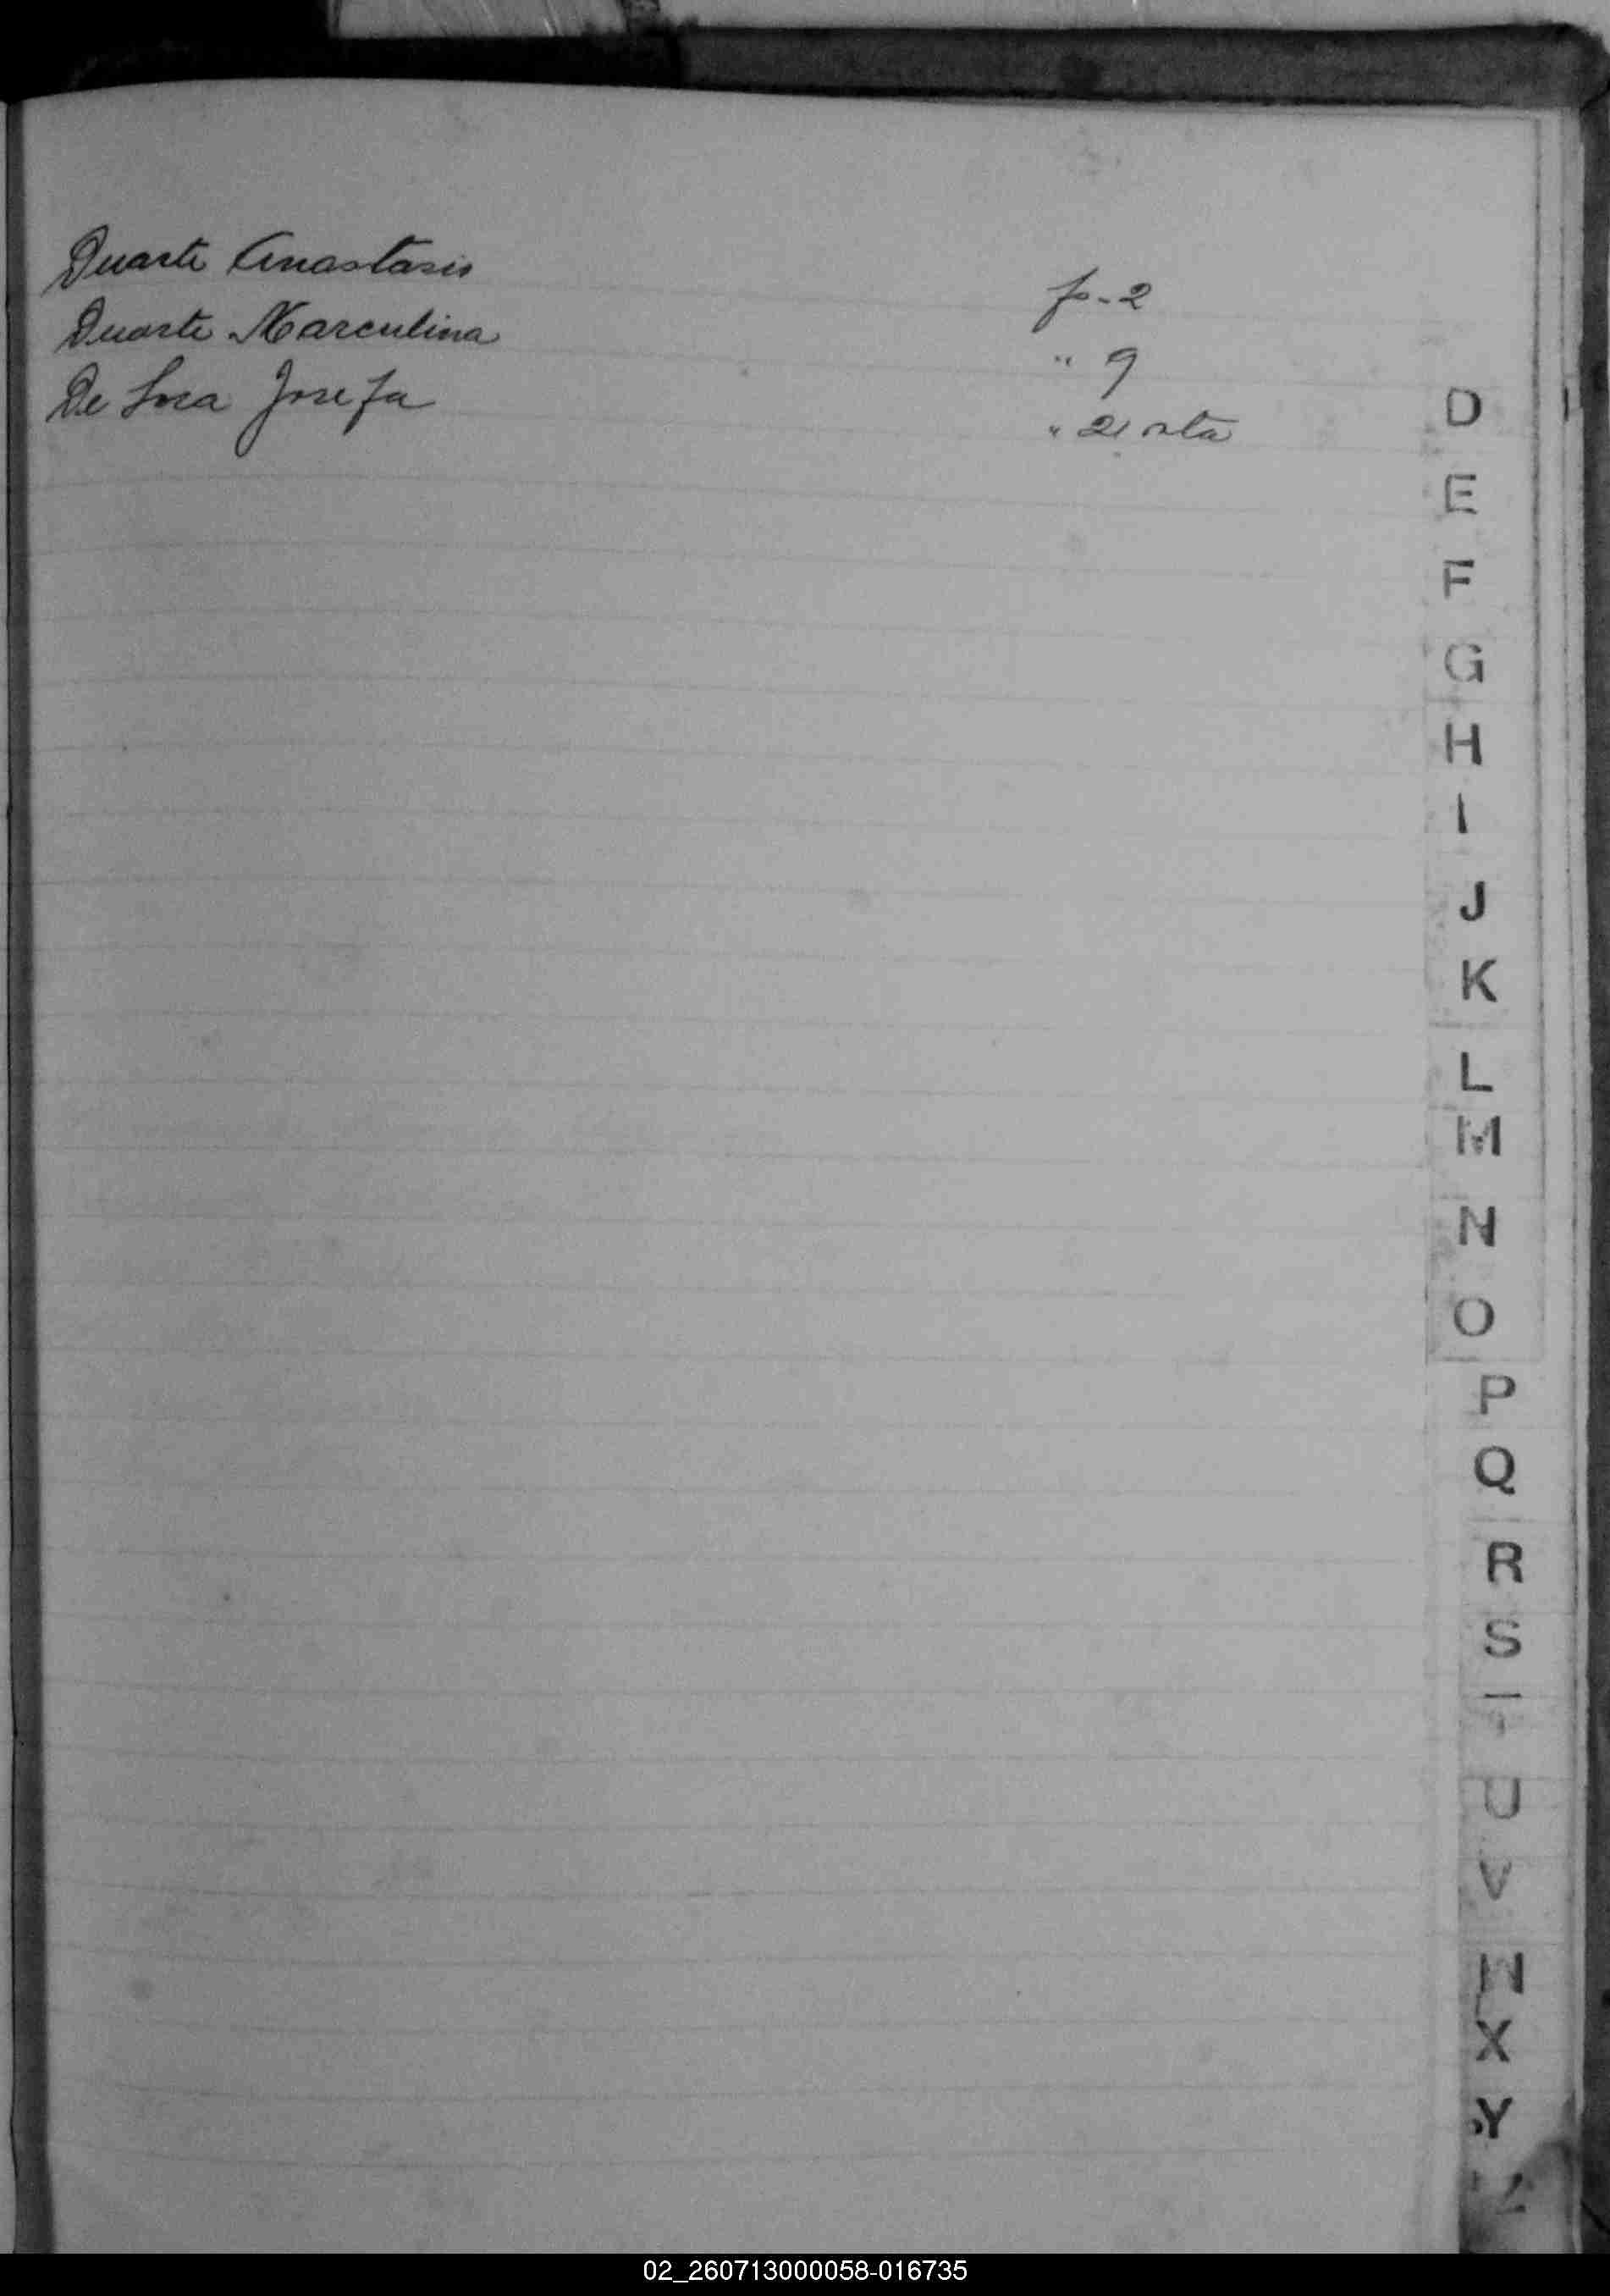 Duarte Anastasio fo-2
Duarte Marculina " 9
De Soca Josefa " 21 vta
D
E
F
G
H
I
J
K
L
M
N
O
P
Q
R
S
T
U
V
W
X
Y
Z
02_260713000058-016735